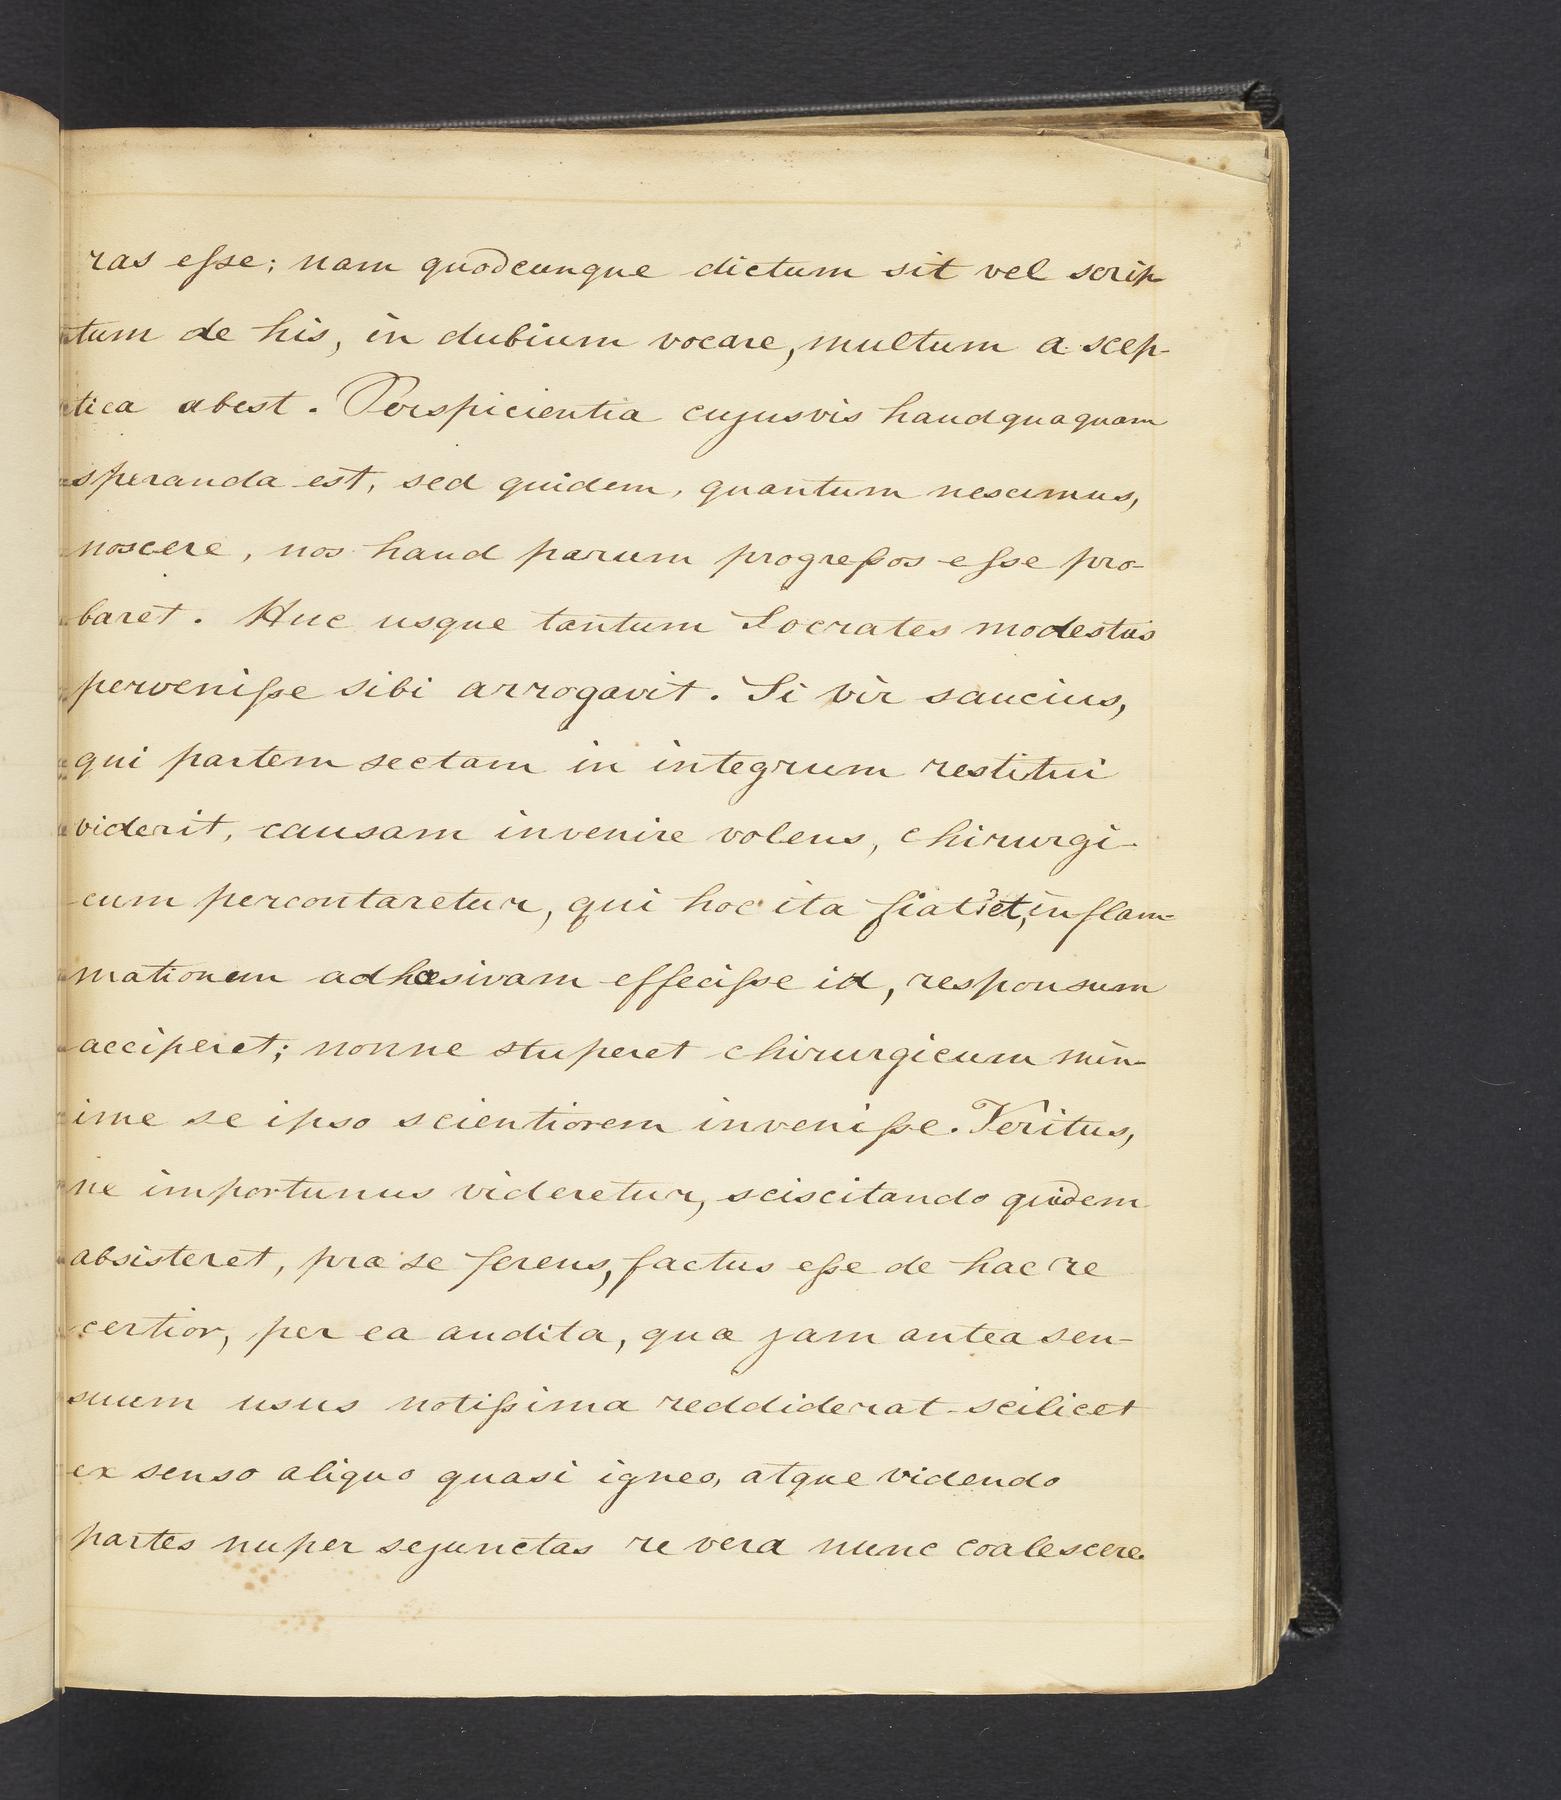 ras esse; nam quodcunque dictum sit vel scrip-
tum de his, in dubium vocare, multum a scep-
tica abest. Perspicientia cujusvis haudquaquam
speranda est, sed quidem, quantum nescimus,
noscere, nos haud parum progressos esse pro-
baret. Huc usque tantum Socrates modestus
pervenisse sibi arrogavit. Si vir saucius,
qui partem sectam in integrum restitui
viderit, causam invenire volens, chirurgi-
cum percontaretur, qui hoc ita fiat? et, inflam-
mationem adhæsivam effecisse id, responsum
acciperet; nonne stuperet chirurgicum min-
ime se ipso scientiorem invenisse. Veritus,
ne importunus videretur, sciscitando quidem
absisteret, præ se ferens, factus esse de hac re
certior, per ea audita, quæ jam antea sen-
suum usus notissima reddiderat - scilicet
ex senso aliquo quasi igneo, atque videndo
partes nuper sejunctas re vera nunc coalescere.